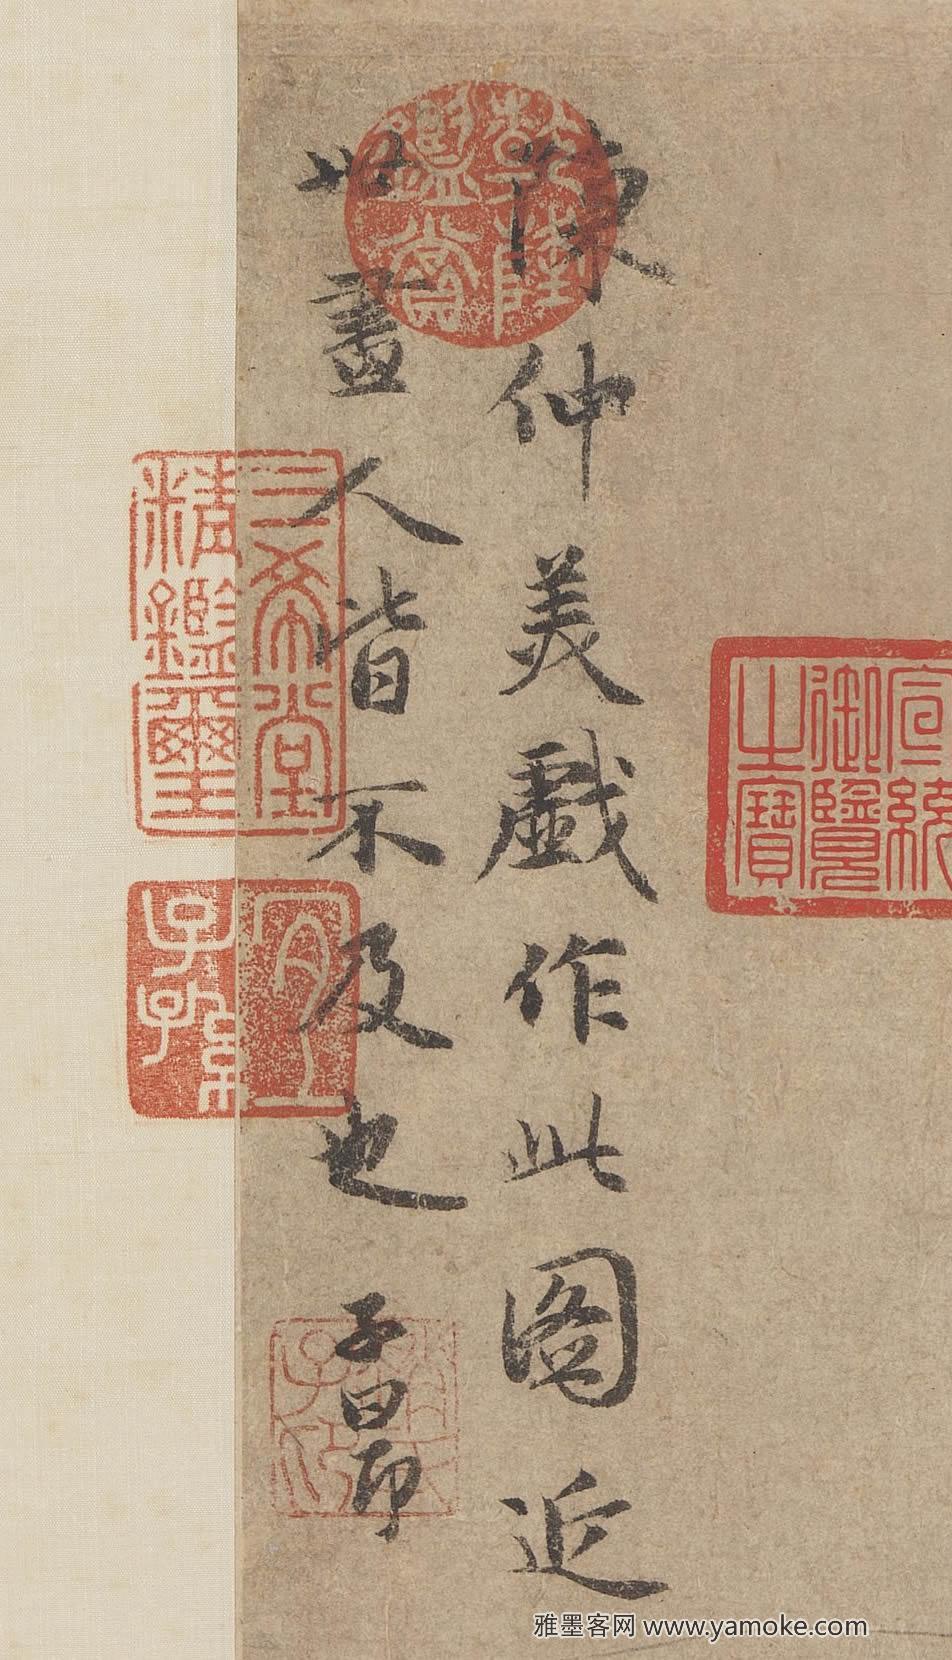 陳仲美戲作此圖近
世畫人皆不及也
子昂
乾隆鑑賞
三希堂
精鑑璽
宜
子孫
宣統
御覽
之寶
雅墨客网 www.yamoke.com